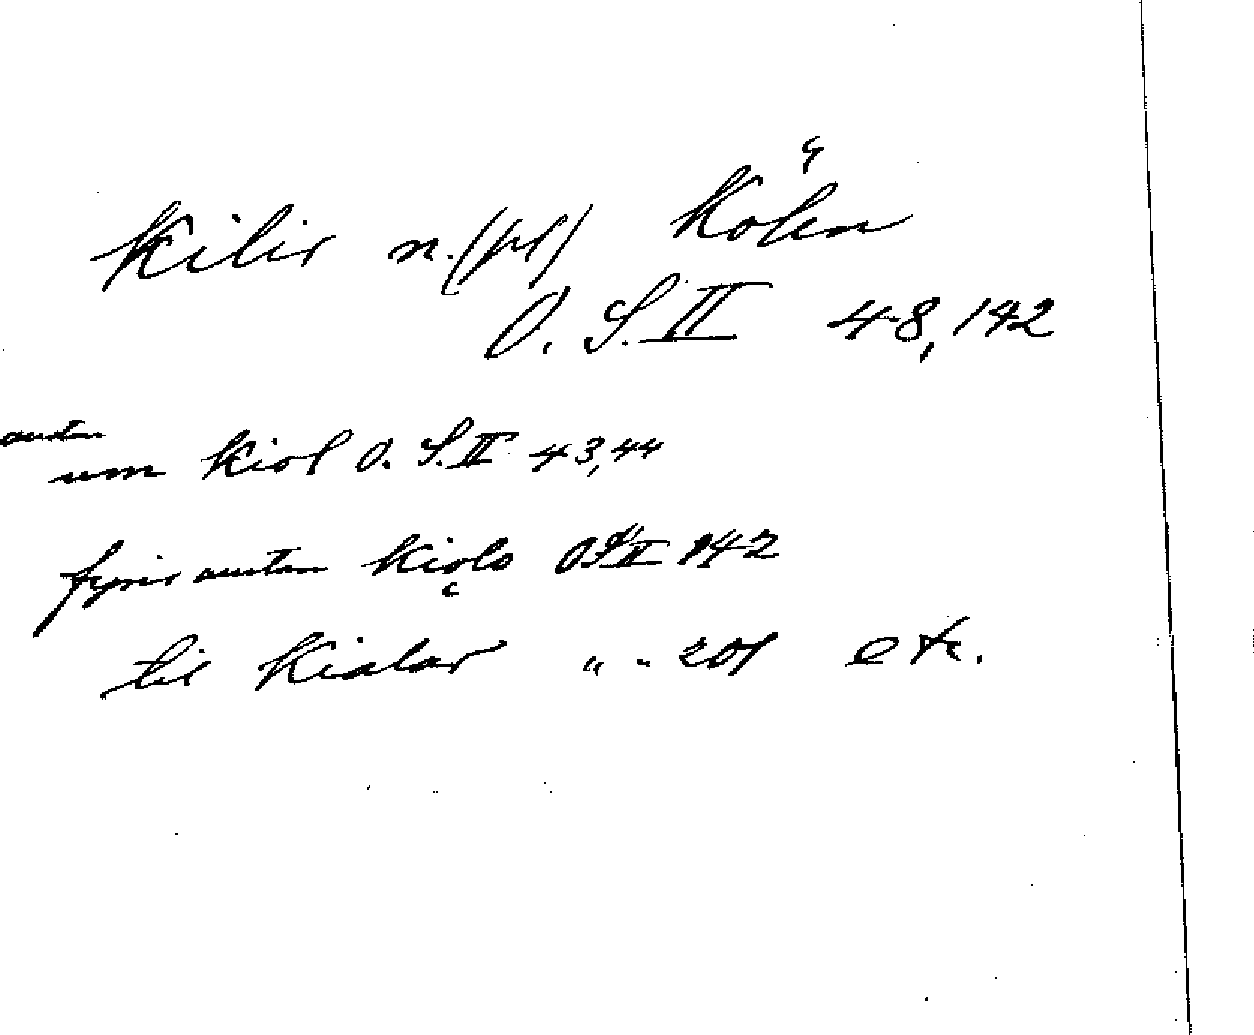 Kilir n. (pl) Kölen
O. S. II 48, 142
austan
um Kiol O. S. II 43, 44
fyrir austan Kiolo O S II 142
til Kialar " - 201 etc.